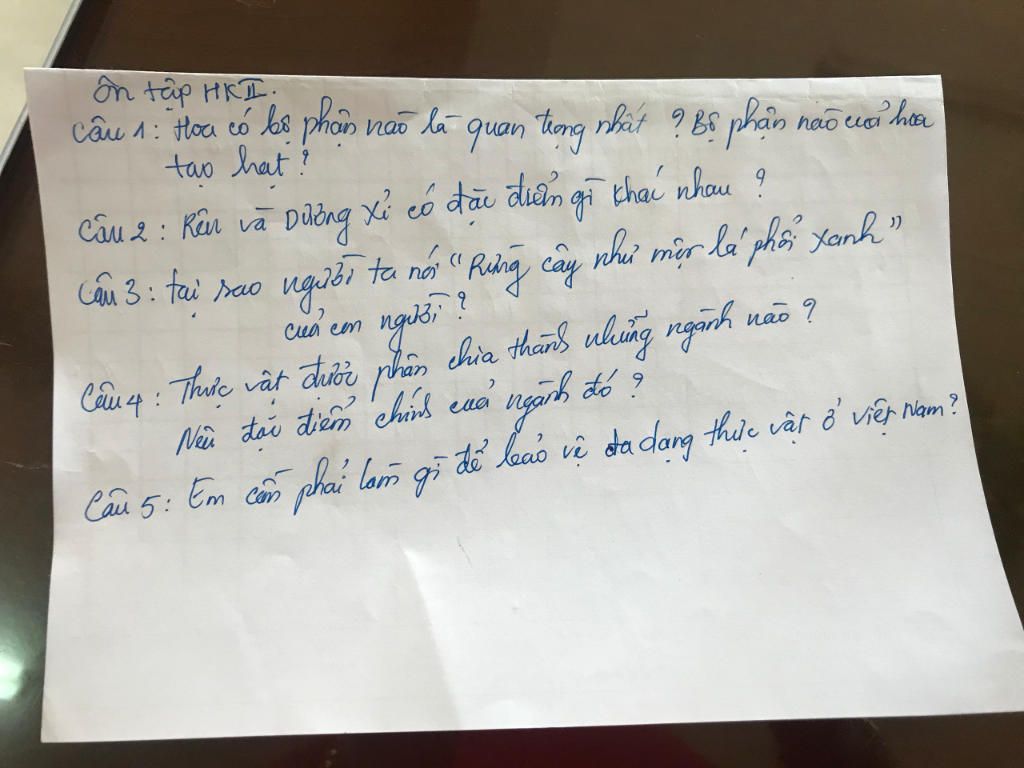 Ôn tập HKII.
Câu 1: Hoa có bộ phận nào là quan trọng nhất? Bộ phận nào của hoa
tạo hạt?
Câu 2: Rêu và Dương xỉ có đặc điểm gì khác nhau?
Câu 3: tại sao người ta nói "Rừng cây như một lá phổi xanh"
của con người?
Câu 4: Thực vật được phân chia thành những ngành nào?
Nêu đặc điểm chính của ngành đó?
Câu 5: Em cần phải làm gì để bảo vệ đa dạng thực vật ở việt Nam?